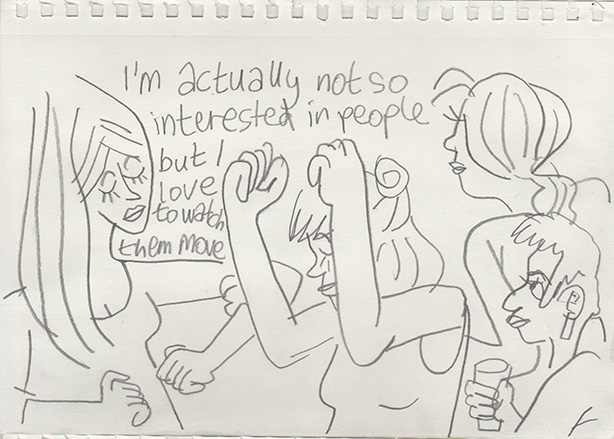 I'm actually not so
interested in people
but I
love
to watch
them move